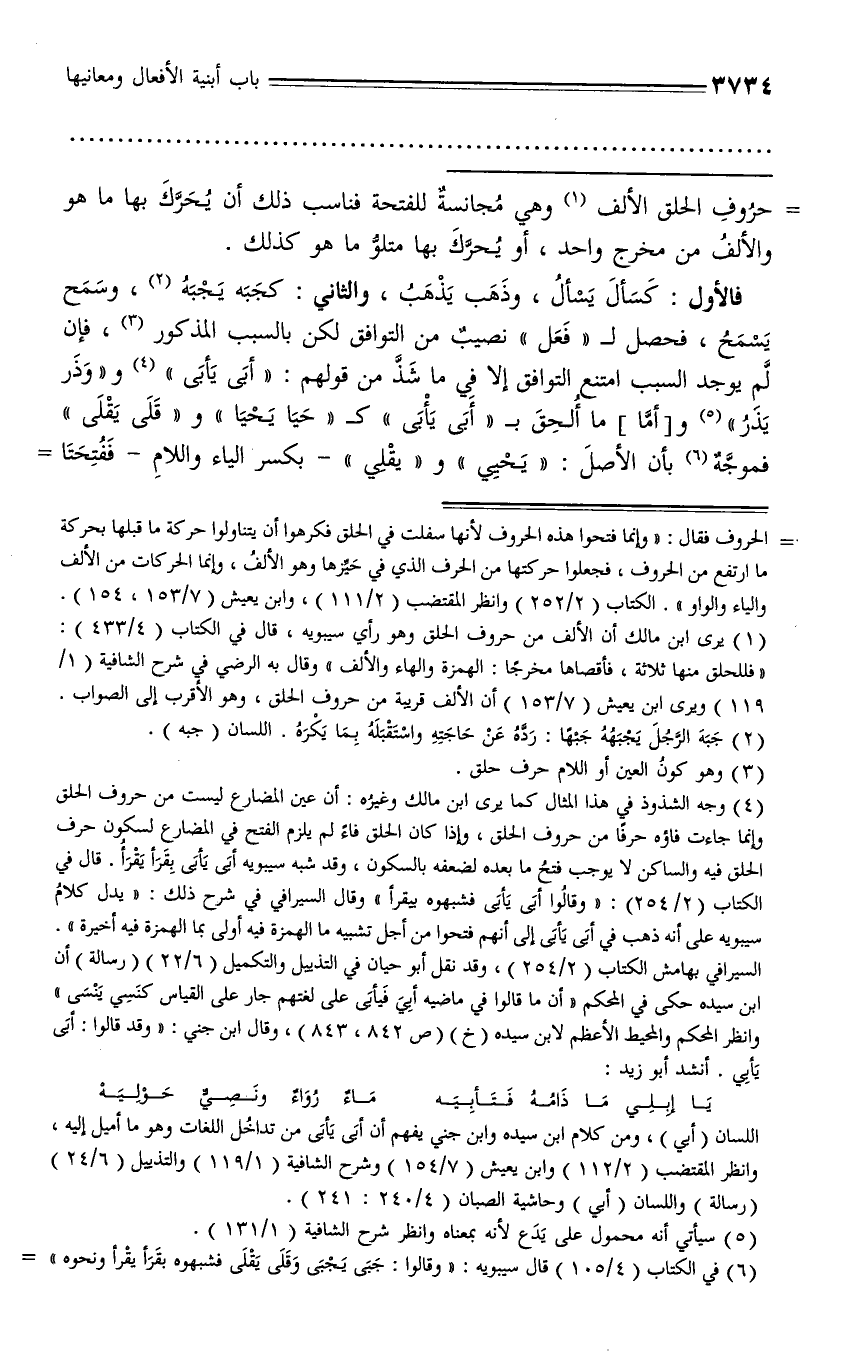 ٣٧٣٤ باب أبنية الأفعال ومعانيها
= حرُوفِ الحلق الألف (١) وهي مُجانسةٌ للفتحة فناسب ذلك أن يُحَرَّكَ بها ما هو
والألفُ من مخرج واحد ، أو يُحرَّكَ بها متلوُّ ما هو كذلك .
فالأول : كَسَألَ يَسْألُ ، وذَهَب يَذْهَبُ ، والثاني : كجَبَه يَجْبَهُ (٢) ، وسَمَح
يَسْمَحُ ، فحصل لـ « فَعَل » نصيبٌ من التوافق لكن بالسبب المذكور (٣) ، فإن
لَّم يوجد السبب امتنع التوافق إلا في ما شَذَّ من قولهم : « أبَى يَأبَى » (٤) و « وَذَر
يَذَرُ » (٥) و [ أمَّا ] ما أُلحِقَ بـ « أَبَى يَأْبَى » كـ « حَيَا يَحْيَا » و « قَلَى يَقْلَى »
فموجَّهٌ (٦) بأن الأصلَ : « يَحْيِي » و « يقْلِي » – بكسر الياء واللامِ – فَفُتِحَتَا =
= الحروف فقال : « وإنما فتحوا هذه الحروف لأنها سفلت في الحلق فكرهوا أن يتناولوا حركة ما قبلها بحركة
ما ارتفع من الحروف ، فجعلوا حركتها من الحرف الذي في حَيِّزها وهو الألفُ ، وإنما الحركات من الألف
والياء والواو » . الكتاب ( ٢٥٢/٢ ) وانظر المقتضب ( ١١١/٢ ) ، وابن يعيش ( ١٥٣/٧ ، ١٥٤ ) .
(١) يرى ابن مالك أن الألف من حروف الحلق وهو رأي سيبويه ، قال في الكتاب ( ٤٣٣/٤ ) :
« فللحلق منها ثلاثة ، فأقصاها مخرجًا : الهمزة والهاء والألف » وقال به الرضي في شرح الشافية ( ١/
١١٩ ) ويرى ابن يعيش ( ١٥٣/٧ ) أن الألف قريبة من حروف الحلق ، وهو الأقرب إلى الصواب .
(٢) جَبَهَ الرَّجُلَ يَجْبَهُهُ جَبْهًا : رَدَّهُ عَنْ حَاجَتِهِ واسْتَقْبَلَهُ بِمَا يَكْرَهُ . اللسان ( جبه ) .
(٣) وهو كونُ العين أو اللام حرف حلق .
(٤) وجه الشذوذ في هذا المثال كما يرى ابن مالك وغيرُه : أن عين المضارع ليست من حروف الحلق
وإنما جاءت فاؤه حرفًا من حروف الحلق ، وإذا كان الحلق فاءً لم يلزم الفتح في المضارع لسكون حرف
الحلق فيه والساكن لا يوجب فتحُ ما بعده لضعفه بالسكون ، وقد شبه سيبويه أبَى يَأبَى بِقَرَأ يَقْرَأُ . قال في
الكتاب (٢٥٤/٢) : « وقالُوا أبَى يَأبَى فشبهوه بيقرأ » وقال السيرافي في شرح ذلك : « يدل كلامُ
سيبويه على أنه ذهب في أبَى يَأبَى إلى أنهم فتحوا من أجل تشبيه ما الهمزة فيه أولى بما الهمزة فيه أخيرة » .
السيرافي بهامش الكتاب ( ٢٥٤/٢ ) ، وقد نقل أبو حيان في التذييل والتكميل ( ٢٢/٦ ) ( رسالة ) أن
ابن سيده حكى في المحكم « أن ما قالوا في ماضيه أبِيَ فَيأبَى على لغتهم جار على القياس كنَسِي يَنْسَى »
وانظر المحكم والمحيط الأعظم لابن سيده ( خ ) ( ص ٨٤٢ ، ٨٤٣ ) ، وقال ابن جني : « وقد قالوا : أبَى
يَأبِي . أنشد أبو زيد :
يَـا إبِـلِـي مَـا ذَامُـهُ فَـتَـأبِـيَـه مَـاءٌ رُوَاءٌ ونَـصِـيٌّ حَـوْلِـيَـهْ
اللسان ( أبي ) ، ومن كلام ابن سيده وابن جني يفهم أن أبَى يَأبَى من تداخُل اللغات وهو ما أميل إليه ،
وانظر المقتضب ( ١١٢/٢ ) وابن يعيش ( ١٥٤/٧ ) وشرح الشافية ( ١١٩/١ ) والتذييل ( ٢٤/٦ )
( رسالة ) واللسان ( أبي ) وحاشية الصبان ( ٢٤٠/٤ : ٢٤١ ) .
(٥) سيأتي أنه محمول على يَدَع لأنه بمعناه وانظر شرح الشافية ( ١٣١/١ ) .
(٦) في الكتاب ( ١٠٥/٤ ) قال سيبويه : « وقالوا : جَبَى يَجْبَى وَقَلَى يَقْلَى فشبهوه بقَرَأ يقْرأ ونحوه » =